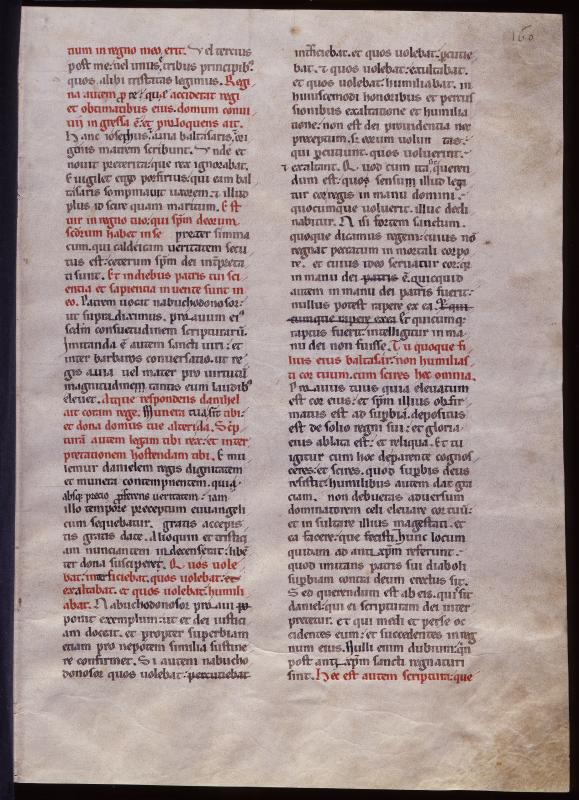 160
tium in regno meo erit. Vel tercius
post me: uel unus e tribus principib'
quos alibi tristatas legimus. Regi
na autem p re que acciderat regi
et obtimatibus eius. domum conui
uii ingressa ē: et proloquens ait.
Hanc iosephus, auia baltasaris, ori
genes matrem scribunt. Vnde et
nouit preterita: que rex ignorabat.
Euigilet ergo porfirius: qui eam bal
tasaris sompniauit uxorem: & illud
plus scire quam maritum. Est
uir in regno tuo: qui spm deorum
scōrum habet in se preter simma
cum. qui caldeicam ueritatem secu
tus est: ceteri spm dei interpreta
ti sunt. Et in diebus patris tui sci
entia et sapientia inuente sunt in
eo. Patrem uocat nabuchodonosor:
ut supra diximus. proauum ei'
scdm consuetudinem scripturarū.
Imitanda ē autem sancti uiri: et
inter barbaros conuersatio. ut re
gis auia uel mater pro uirtutū
magnitudinem tantis eum laudib'
eleuet. Atque respondens danihel
ait coram rege. Munera tua sīt tibi:
et dona domus tue alteri da. Scrip
turā autem legam tibi rex: et inter
pretationem hostendam tibi. Emu
lemur danielem regis dignitatem
et munera contempnentem. quia
absq; precio proferens ueritatem: iam
illo tempore preceptum euuangeli
cum sequebatur. gratis accepis
tis gratis date. Alioquin et tristici
am nunciantem indecens erat: libē
ter dona suscipere. Quos uole
bat: interficiebat. quos uolebat: et
exaltabat. et quos uolebat: humili
abat. Nabuchodonosor proaui
ponit exemplum: ut et dei iustici
am doceat. et propter superbiam
etiam pro nepotem similia sustine
re confirmet. Si autem nabucho
donosor quos uolebat: percutiebat
interficiebat. et quos uolebat: percutie
bat. & quos uolebat: exaltabat.
et quos uolebat: humiliabat. in
huiuscemodi honoribus et percus
sionibus exaltatione et humilia
tione: non est dei prouidentia nec
preceptum. sed eorum uoluntas:
qui percutiunt. quos uoluerint.
& exaltant. Quod cum ita sit, queren
dum est: quos sensum illud legi
tur cor regis in manu domini.
quocumque uoluerit. illuc decli
nabitur. Nisi fortem sanctum.
quoque dicimus regem: cuius nō
regnat peccatum in mortali corpo
re. et cuius ideo seruatur cor: q
in manu dei patris ē. quicquid
autem in manu dei patris fuerit:
nullus potest rapere ex ea. Et qui
cumque rapere exea Et quicumque
raptus fuerit intelligitur in ma
nu dei non fuisse. Tu quoque fi
lius eius baltasar: non humilias
ti cor tuum. cum scires hec omnia.
Proauus tuus quia eleuatum
est cor eius: et spm illius obfir
matus est ad supbiā. depositus
est de solio regni sui: et gloria
eius ablata est: et reliqua. Et tu
igitur cum hoc de parente cognos
ceres: et scires. quod supbis deus
resistit: humilibus autem dat gra
ciam. non debueras aduersum
dominatorem celi eleuare cor tuū:
et insultare illius magestati. et
ea facere: que fecisti. Hunc locum
quidam ad anti xpm referunt.
quod imitans patris sui diaboli
supbiam contra deum erectus sit.
Sed querendum est ab eis. qui sit
daniel: qui ei scripturam dei inter
pretetur. et qui medi et perse oc
cidentes eum: et succedentes in reg
num eius. Nulli enim dubium: qn
post anti xpm sancti regnaturi
sint. Hec est autem scriptura: que